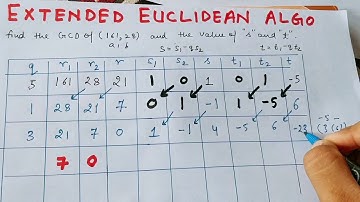 EXTENDED EUCLIDEAN ALGO
find the GCD of (161, 28) and the value of "s" and "t".
a, b s = s₁ - q s₂ t = t₁ - q t₂
q r₁ r₂ r s₁ s₂ s t₁ t₂ t
5 161 28 21 1 0 1 0 1 -5
1 28 21 7 0 1 -1 1 -5 6
3 21 7 0 1 -1 4 -5 6 -23
-5 -
(3 (6))
7 0